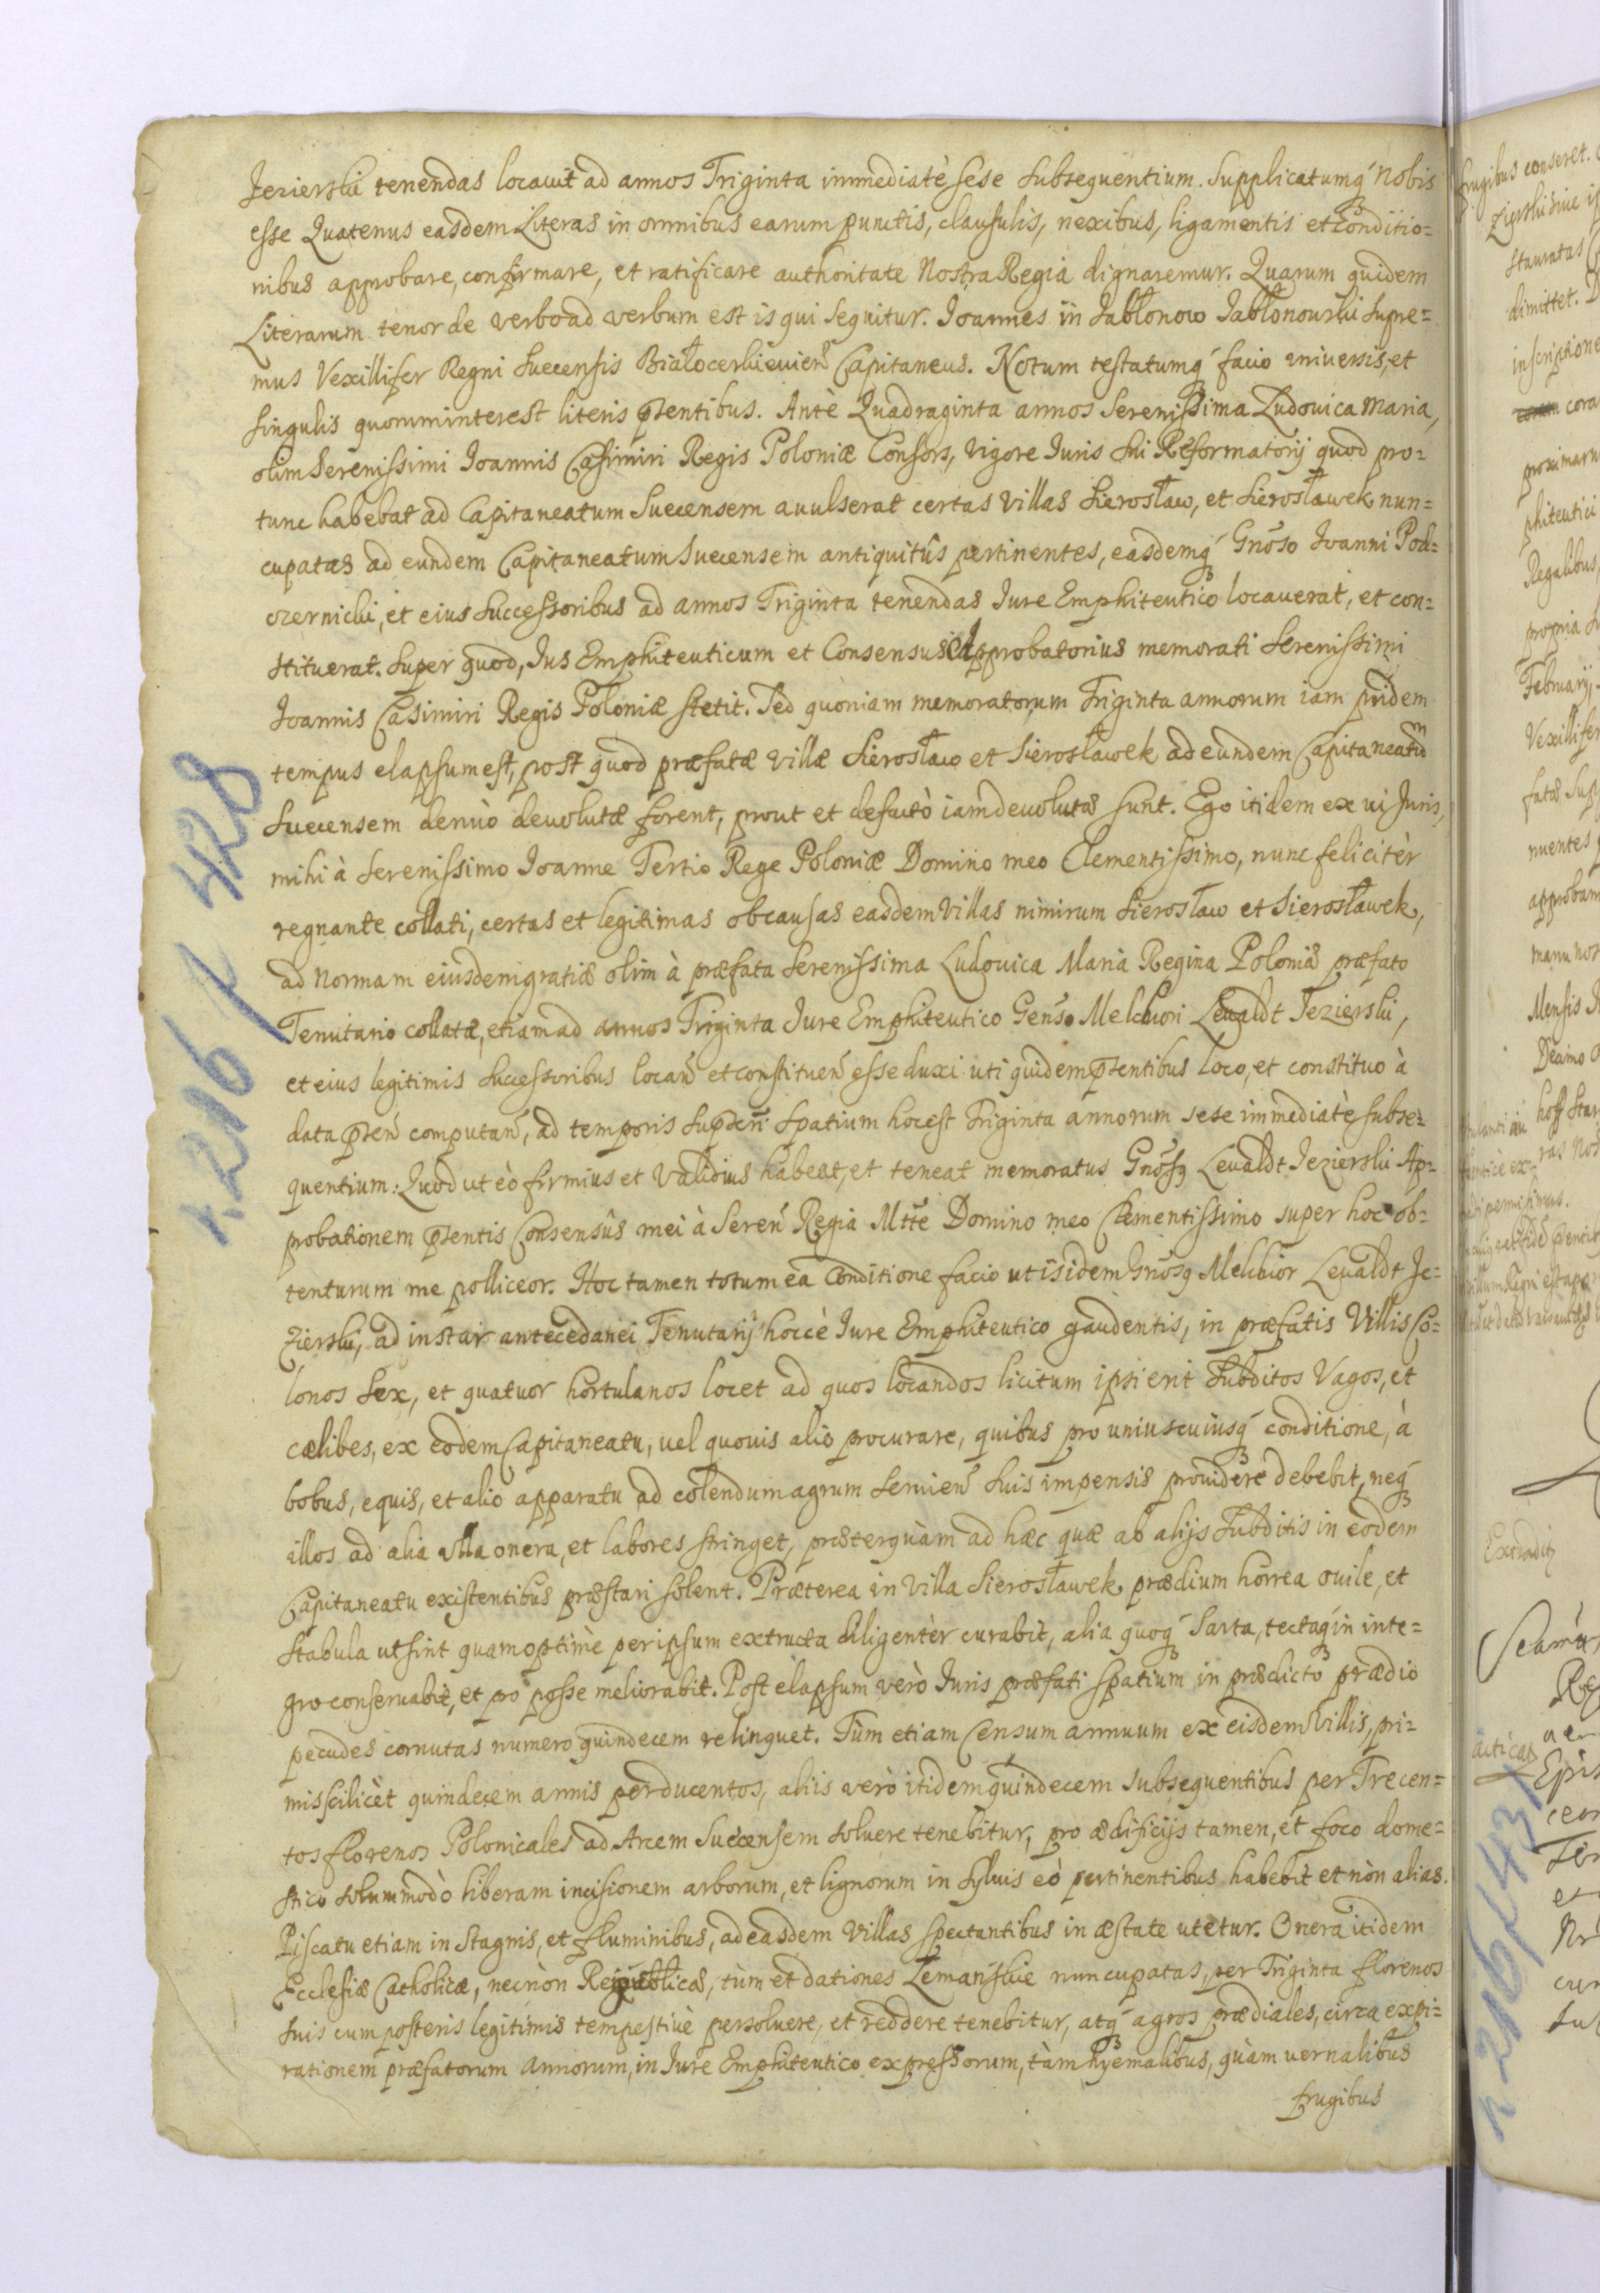 Jezierski tenendas locavit ad annos Triginta immediatè sese subsequentium. Supplicatumq́ Nobis
esse Quatenus easdem Literas in omnibus earum punctis, clausulis, nexibus, ligamentis et conditio=
nibus approbare, confirmare, et ratificare authoritate Nostra Regia dignaremur. Quarum quidem
Literarum tenor de verbo ad verbum est is qui sequitur. Joannes in Jabłonow Jabłonowski Supre=
mus Vexillifer Regni Suecensis Białocerkievieñ Capitaneus. Notum testatumq́ facio universis, et
singulis quorum interest literis pn̄tibus. Antè Quadraginta annos Serenissima Ludovica Maria,
olim Serenissimi Joannis Casimiri Regis Poloniæ Consors, vigore Juris sui Reformatorij quod pro=
tunc habebat ad Capitaneatum Suecensem avulserat certas villas Sierosław, et Sierosławek nun=
cupatas ad eundem Capitaneatum Suecensem antiquitûs pertinentes, easdemq́ Gnōso Joanni Pod=
czernicki, et eius Successoribus ad annos Triginta tenendas Jure Emphiteutico locaverat, et con=
stituerat. Super quod, Jus Emphiteuticum et Consensus Approbatorius memorati Serenissimi
Joannis Casimiri Regis Poloniæ stetit. Sed quoniam memoratorum Triginta annorum iam pridem
tempus elapsum est, post quod præfatæ villæ Sierosław et Sierosławek ad eundem Capitaneatūm
Suecensem denùo devolutæ forent, prout et defactò iam devolutæ sunt. Ego itidem ex vi Juris,
mihi à Serenissimo Joanne Tertio Rege Poloniæ Domino meo Clementissimo, nunc felicitèr
regnante collati, certas et legitimas ob causas easdem Villas nimirum Sierosław et Sierosławek,
ad normam eiusdem gratiæ olim à præfata Serenissima Ludovica Maria Regina Poloniæ præfato
Tenutario collatæ, etiam ad annos Triginta Jure Emphiteutico Gen̄so Melchiori Levaldt Jezierski,
et eius legitimis Successoribus locañ et constitueñ esse duxi uti quidem pn̄tibus loco, et constituo à
data pn̄tiũ computañ, ad temporis supscrī spatium hoc est Triginta annorum sese immediatè subse=
quentium: Quod ut eò firmius et validius habeat, et teneat memoratus Gnōsq Levaldt Jezierski Ap=
probationem pn̄tis Consensûs mei à Sereñ Regia Mtt̄e Domino meo Clementissimo super hoc ob=
tenturum me polliceor. Hoc tamen totum ea Conditione facio ut is idem Gnōsq Melchior Levaldt Je=
zierski, ad instar antecedanei Tenutarij hoccè Jure Emphiteutico gaudentis, in præfatis Villis Co=
lonos Sex, et quatuor hortulanos locet ad quos locandos licitum ipsi erit Subditos Vagos, et
cælibes, ex eodem Capitaneatu, vel quovis alio procurare, quibus pro uniuscuiusq́ conditione, à
bobus, equis, et alio apparatu ad colendum agrum servieñ suis impensis providere debebit, neq́
illos ad alia ulla onera, et labores stringet, præterquàm ad hæc quæ ab alijs Subditis in eodem
Capitaneatu existentibus præstari solent. Præterea in Villa Sierosławek prædium horrea ovile, et
stabula ut sint quam optimè per ipsum extructa diligentèr curabit, alia quoq́ Sarta, tectaq́ in inte=
gro conservabit, et pro posse meliorabit. Post elapsum verò Juris præfati spatium in prædicto prædio
pecudes cornutas numero quindecem relinquet. Tùm etiam Censum annuum ex eisdem Villis, pri=
mis scilicèt quindecem annis per ducentos, aliis verò itidem quindecem subsequentibus per Trecen=
tos florenos Polonicales ad Arcem Suecensem solvere tenebitur, pro ædificijs tamen, et foco dome=
stico solummodò liberam incisionem arborum, et lignorum in sylvis eò pertinentibus habebit et nòn alias.
Piscatu etiam in Stagnis, et fluminibus, ad easdem Villas spectantibus in æstate utetur. Onera itidem
Ecclesiæ Catholicæ, necnòn Reipublicæ, tùm et dationes Lemanskie nuncupatas, per Triginta florenos
suis cum posteris legitimis tempestivè persolvere, et reddere tenebitur, atq́ agros prædiales, circa expi=
rationem præfatorum Annorum, in Jure Emphiteutico expressorum, tàm hyemalibus, quàm vernalibus
frugibus
k. 216 / 428
frugibus conseret.
zierski sive
stauratas
dimittet.
inscriptione
cora
proximarum
phiteutici
Regalibus,
propria
Februarij,
Vexillifer
nuentes
approbam
manu nos
Mensis
Decimo
ras Nos
permisimus.
Extradit
k 216 / 431